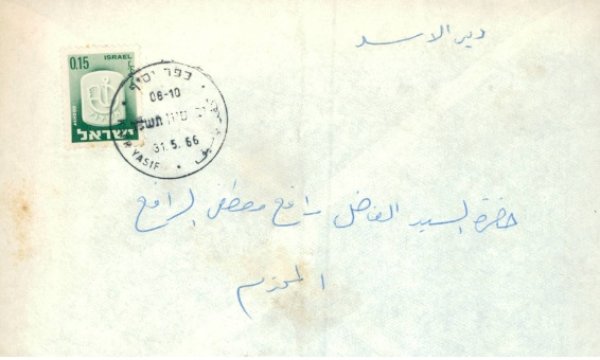 دير الاسد
0.15 ISRAEL
ישראל
כפר יסיף
08-10
31.5.66
KAFR YASIF
حضرة السيد الفاضل رافع مصطفى الرافع
المحترم